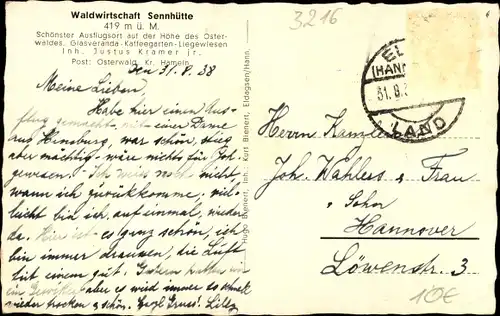 Waldwirtschaft Sennhütte
419 m ü. M.
Schönster Ausflugsort auf der Höhe des Oster-
waldes. Glasveranda - Kaffeegarten - Liegewiesen
Inh. Justus Kramer jr.
Post: Osterwald, Kr. Hameln
Den 31.8.38
Meine Lieben,
Habe hier einen Aus-
flug gemacht, mit einer Dame
aus Hamburg, war schön, stieg
aber mächtig - wäre nichts für Joh.
gewesen. Ich weiss noch nicht
wann ich zurückkomme. viel-
leicht bin ich auf einmal wieder
da. Hier ist es ganz schön, ich
bin immer draussen, die Luft
tut einem gut. Gestern hatten wir
ein Gewitter aber es wird immer so schnell
wieder trocken & schön. Hrzl. Gruss! Lilly
Hugo Bienert, Inh. Kurt Bienert, Eldagsen/Hann.
3216
(HANN
31.8.
LAND
Herrn Kanzlei
Joh. Wahlers & Frau
& Sohn
Hannover
Löwenstr. 3
10€